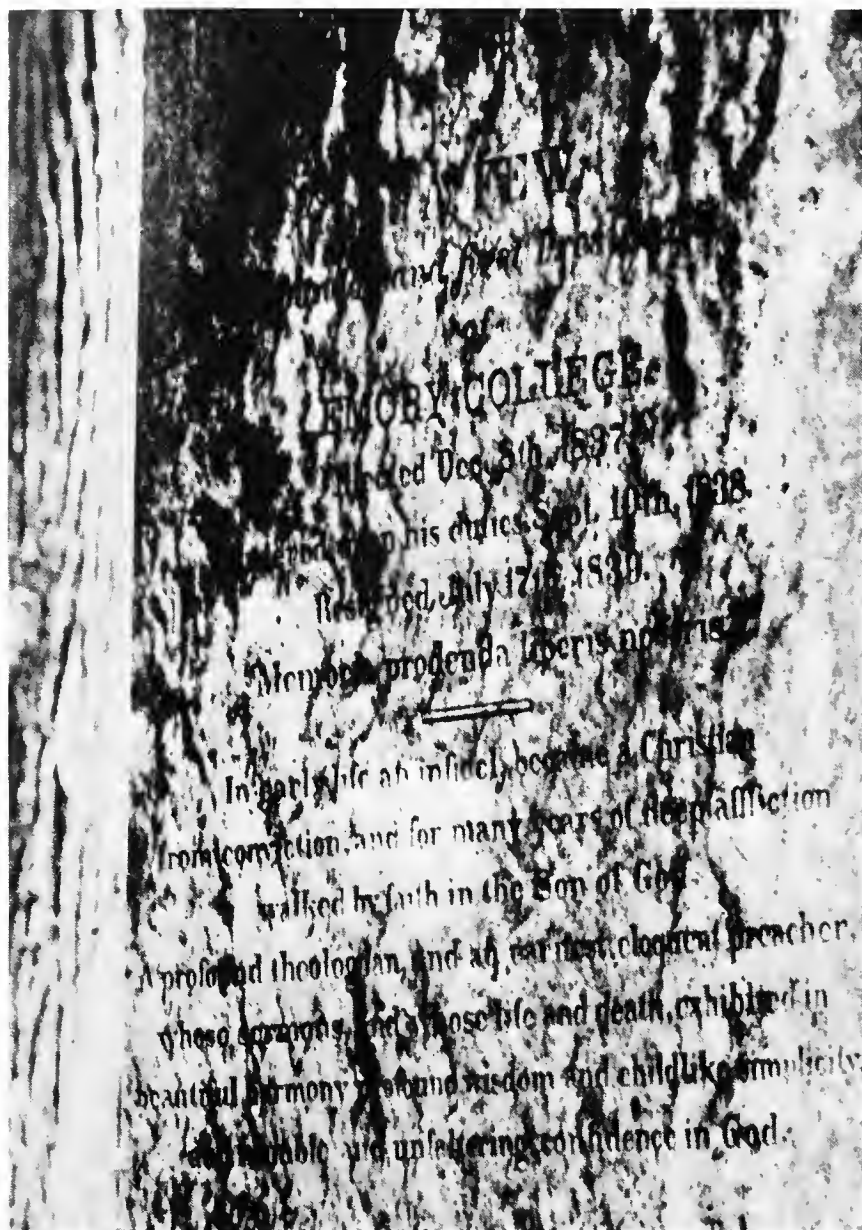 and first
of
EMORY COLLEGE
Elected Dec. 8th, 1837.
his duties, Sept. 10th, 1838.
Resigned, July 17th, 1839.
"Memoria prodenda liberis nostris."
In early life an infidel, became a Christian
from conviction, and for many years of deep affliction
walked by faith in the Son of God.
A profound theologian, and an earnest, eloquent preacher,
whose sermons, and whose life and death, exhibited in
beautiful harmony profound wisdom and childlike simplicity,
and unfaltering confidence in God.